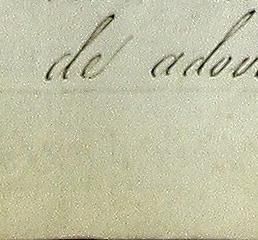 de adou